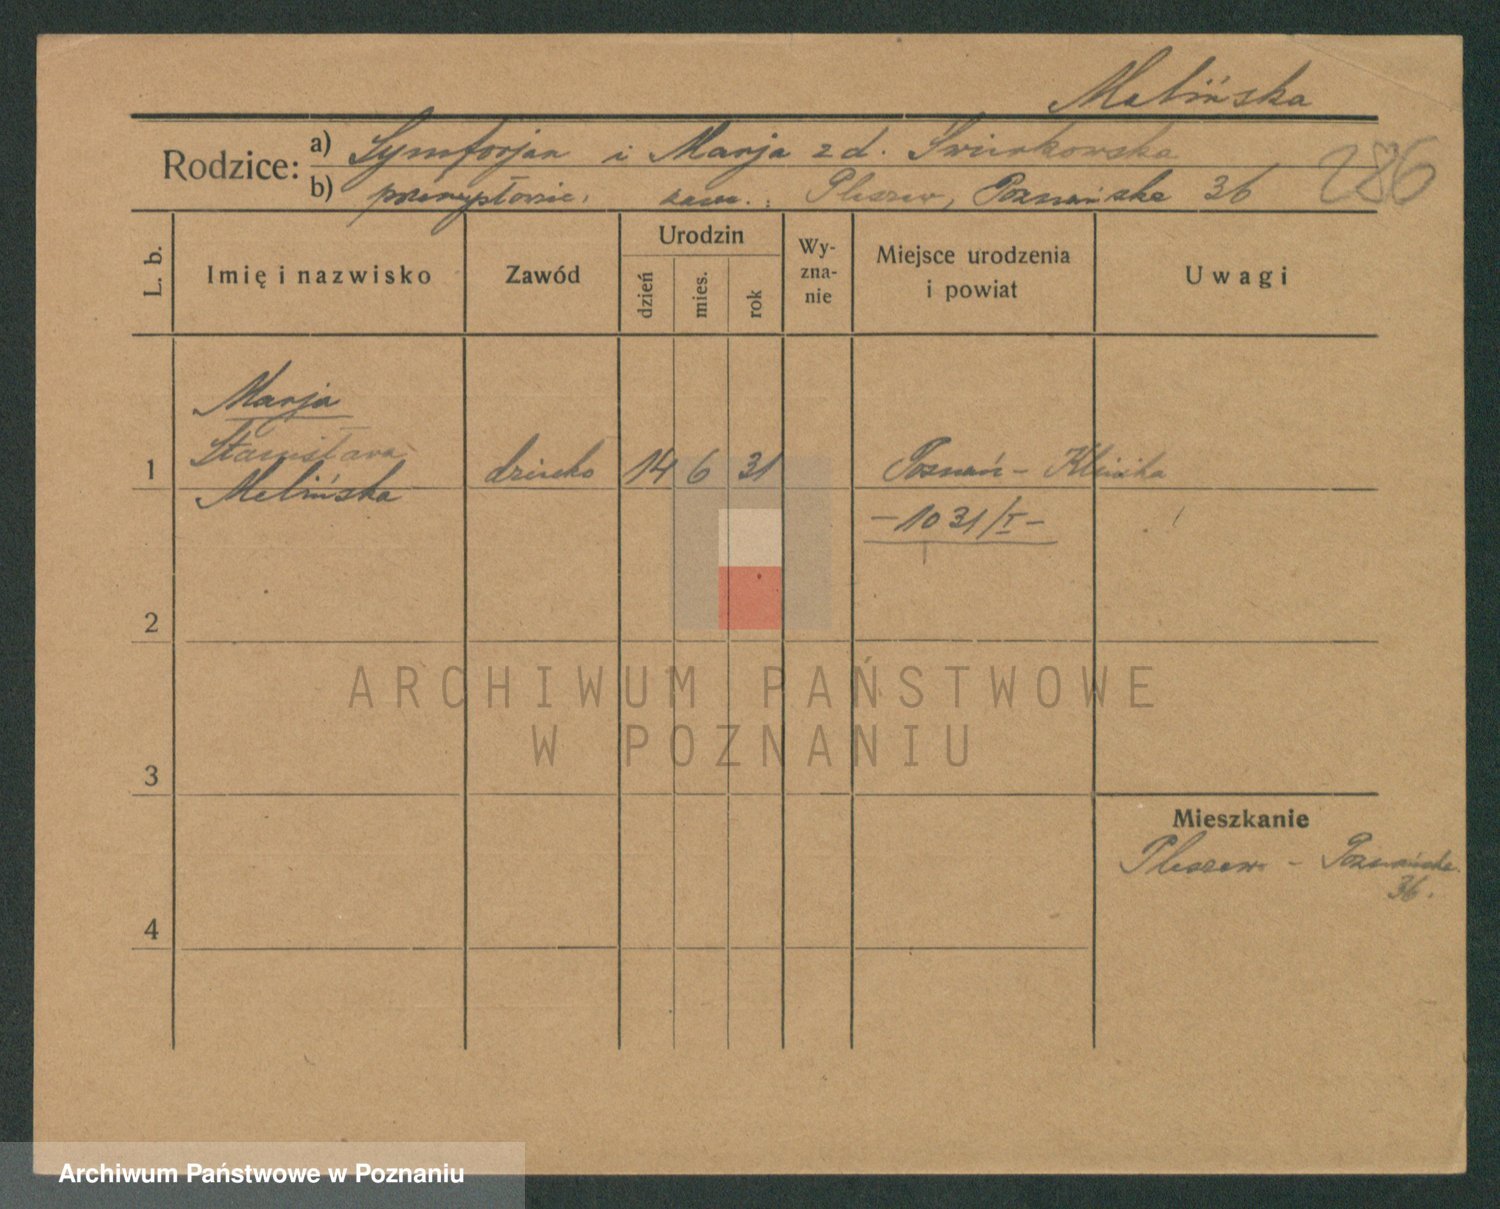 Melińska
Rodzice: a) Symforjan i Marja z d. Świerkowska
b) przemysłowiec, zam.: Pleszew, Poznańska 36
286
L. b.
Imię i nazwisko
Zawód
Urodzin
dzień
mies.
rok
Wy-
zna-
nie
Miejsce urodzenia
i powiat
Uwagi
Marja
Stanisława
1 Melińska dziecko 14 6 31 Poznań - Klinika
- 1031/I -
2
3
4
Mieszkanie
Pleszew - Poznańska
36.
ARCHIWUM PAŃSTWOWE
W POZNANIU
Archiwum Państwowe w Poznaniu